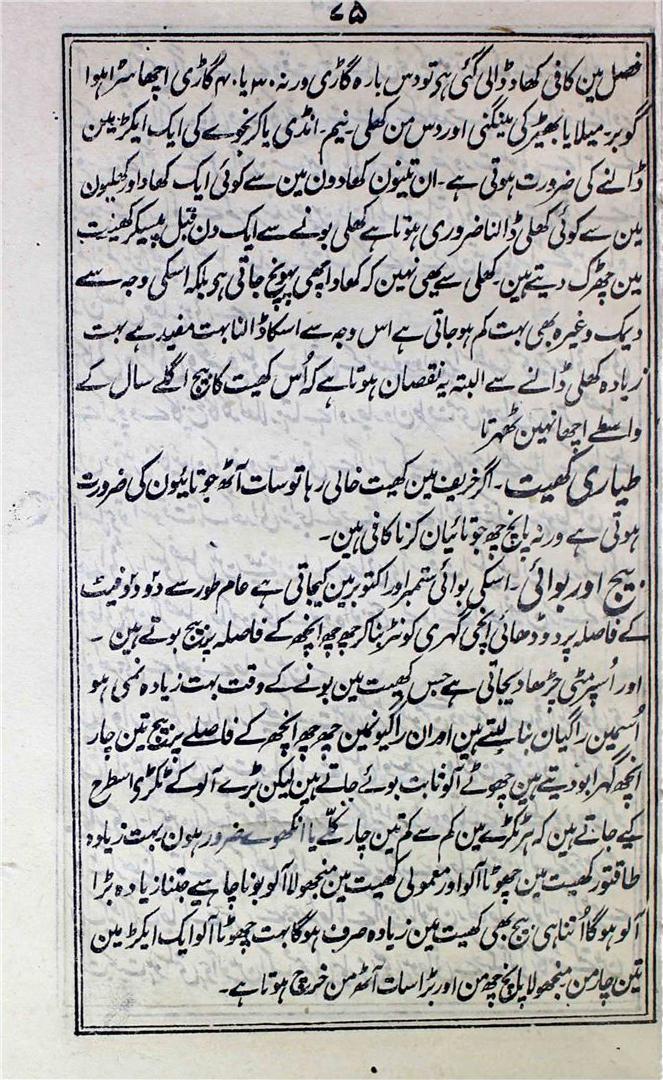 ۷۵
فصل مین کافی کھاد ڈالی گئی ہی تو دس بارہ گاڑی ورنہ ۳۰ یا ۴۰ گاڑی اچھا سڑا ہوا
گوبر۔ میلا یا بھیڑ کی مینگنی اور دس من کھلی۔ نیم۔ انڈی یا کرنجوے کی ایک ایکڑ مین
ڈالنے کی ضرورت ہوتی ہے۔ ان تینون کھادون مین سے کوئی ایک کھاد اور کھلیون
مین سے کوئی کھلی ڈالنا ضروری ہوتا ہے کھلی بونے سے ایک دن قبل پیسکر کھیت
مین چھڑک دیتے ہین۔ کھلی سے یہی نہین کہ کھاد اچھی پہونچ جاتی ہی بلکہ اسکی وجہ سے
دیمک وغیرہ بھی بہت کم ہو جاتی ہے اس وجہ سے اسکا ڈالنا بہت مفید ہے بہت
زیادہ کھلی ڈالنے سے البتہ یہ نقصان ہوتا ہے کہ اُس کھیت کا بیج اگلے سال کے
واسطے اچھا نہین ٹھہرتا
طیاری کھیت۔ اگر خریف مین کھیت خالی رہا تو سات آٹھ جوتائیون کی ضرورت
ہوتی ہے ورنہ پانچ چھ جوتائیان کرنا کافی ہین۔
بیج اور بوائی۔ اسکی بوائی ستمبر اور اکتوبر مین کیجاتی ہے عام طور سے دو دو فیٹ
کے فاصلہ پر دو ڈھائی انچی گہری کونڑ بنا کر چھ چھ انچھ کے فاصلہ پر بیج بوتے ہین ۔
اور اُسپر مٹی چڑھا دیجاتی ہے جس کھیت مین بونے کے وقت بہت زیادہ نمی ہو
اُسمین راگیان بنا لیتے ہین اور ان راگیونمین چھ چھ انچھ کے فاصلے پر بیج تین چار
انچھ گہرا بو دیتے ہین چھوٹے آلو ثابت بوئے جاتے ہین لیکن بڑے آلو کے ٹکڑی اسطرح
کیے جاتے ہین کہ ہر ٹکڑے مین کم سے کم تین چار کلّے یا انکھوے ضرور ہون بہت زیادہ
طاقتور کھیت مین چھوٹا آلو اور معمولی کھیت مین منجھولا آلو بونا چاہیے جتنا زیادہ بڑا
آلو ہوگا اُتنا ہی بیج بھی کھیت مین زیادہ صرف ہوگا بہت چھوٹا آلو ایک ایکڑ مین
تین چار من۔ منجھولا پانچ چھ من اور بڑا سات آٹھ من خرچ ہوتا ہے۔